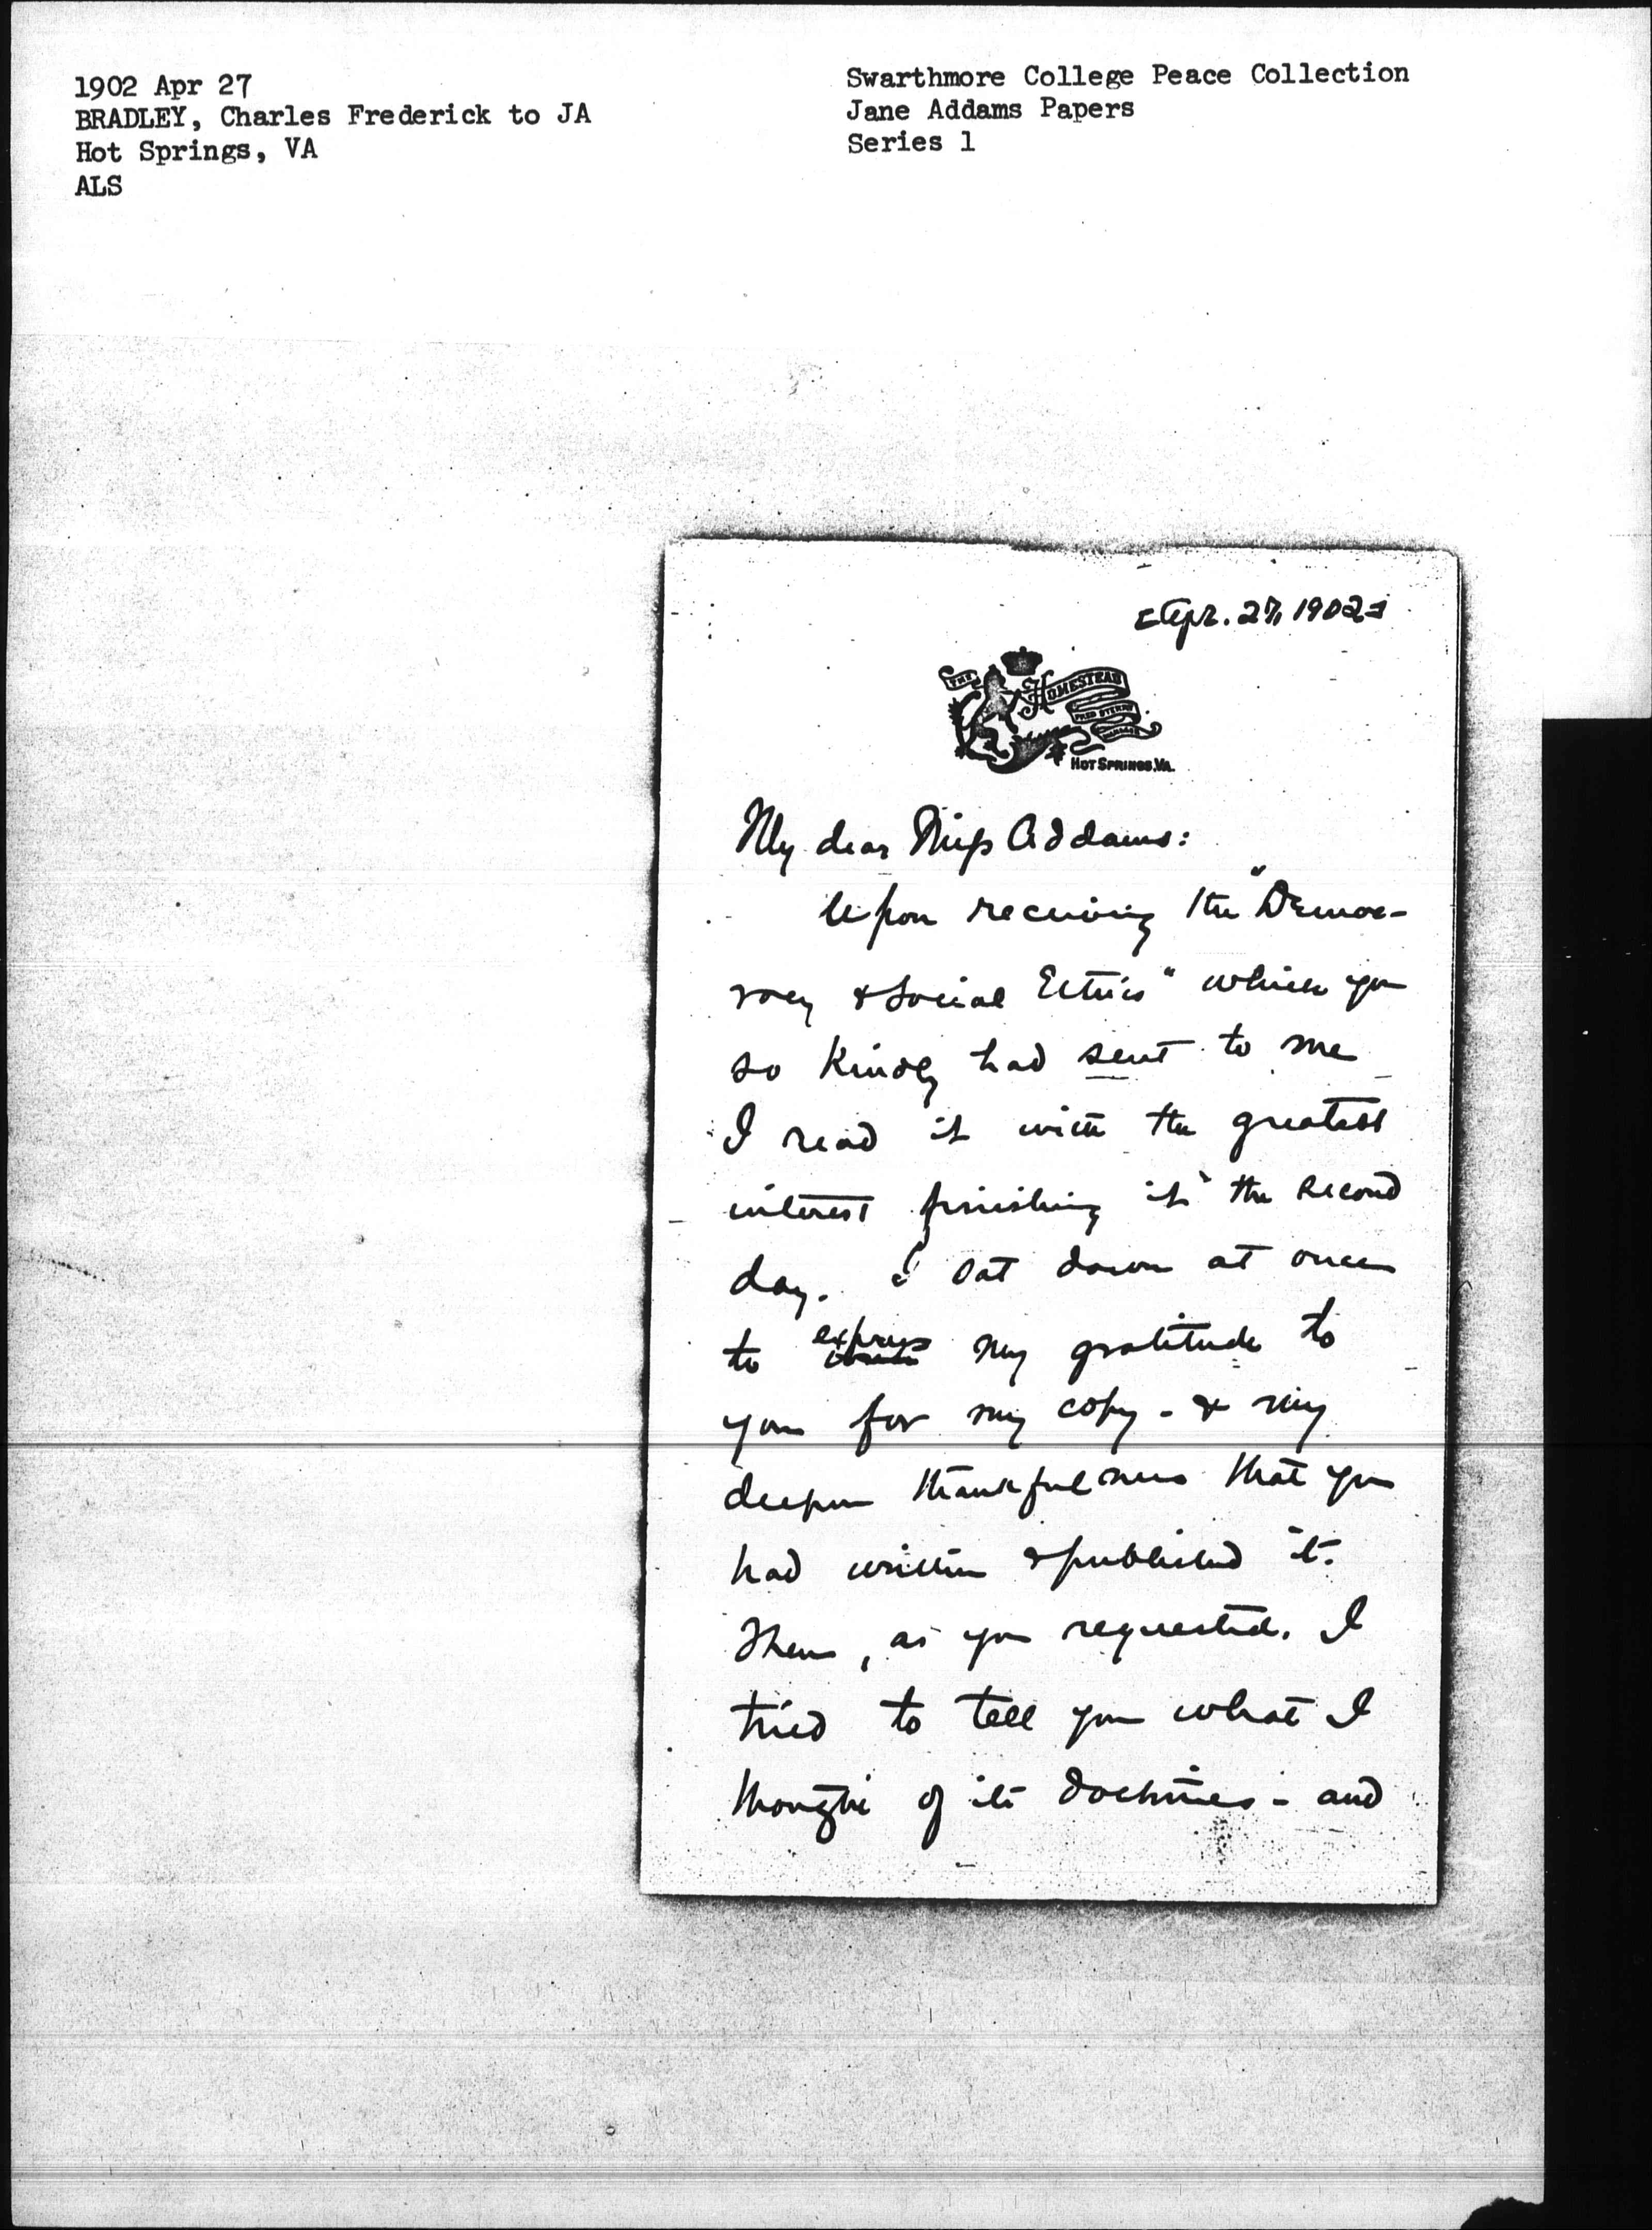 1902 Apr 27
BRADLEY, Charles Frederick to JA
Hot Springs, VA
ALS
Swarthmore College Peace Collection
Jane Addams Papers
Series 1
[Apr. 27, 1902]
THE HOMESTEAD
FRED STERRY
MANAGER
HOT SPRINGS, VA.
My dear Miss Addams:
Upon receiving the "Democ-
racy & Social Ethics" which you
so kindly had sent to me
I read it with the greatest
interest finishing it the second
day. I sat down at once
to express my gratitude to
you for my copy - & my
deeper thankfulness that you
had written & published it.
Then, as you requested, I
tried to tell you what I
thought of its doctrines - and